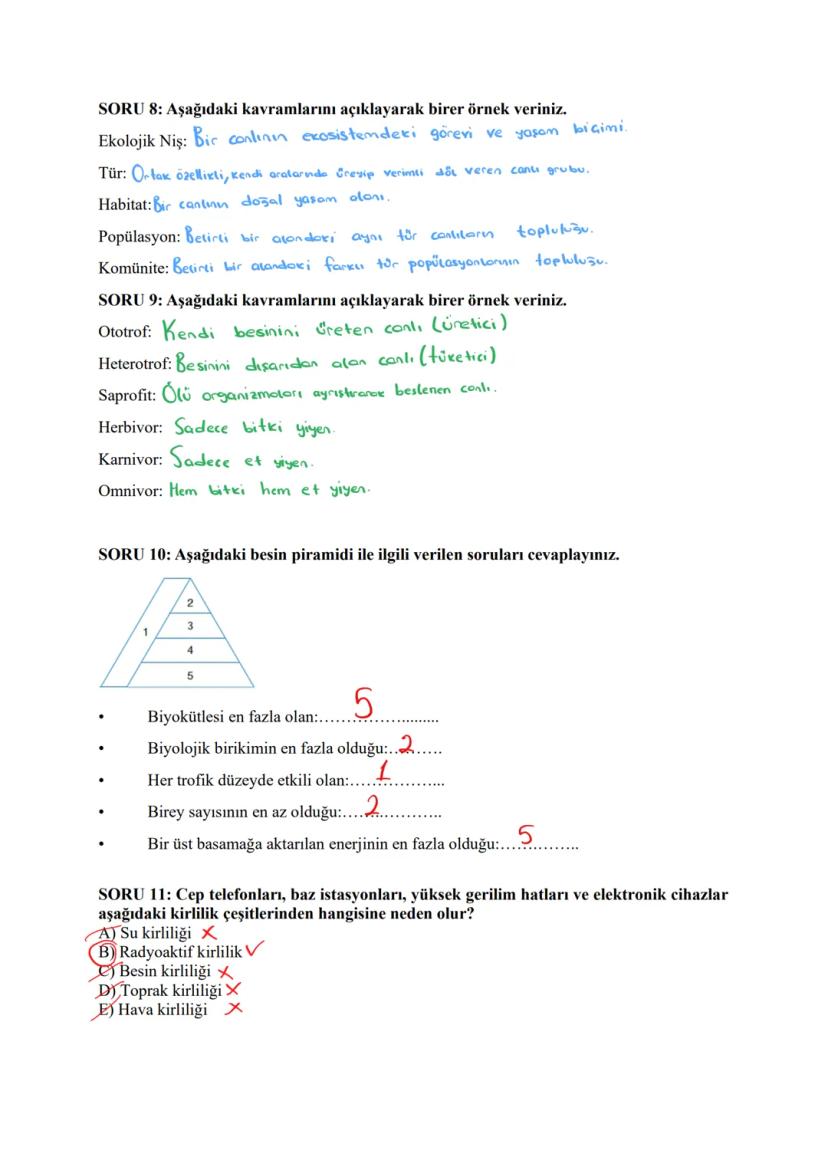 SORU 8: Aşağıdaki kavramlarını açıklayarak birer örnek veriniz.
Ekolojik Niş: Bir canlının ekosistemdeki görevi ve yaşam biçimi.
Tür: Ortak özellikli, kendi aralarında üreyip verimli döl veren canlı grubu.
Habitat: Bir canlının doğal yaşam alanı.
Popülasyon: Belirli bir alandaki aynı tür canlıların topluluğu.
Komünite: Belirli bir alandaki farklı tür popülasyonlarının topluluğu.
SORU 9: Aşağıdaki kavramlarını açıklayarak birer örnek veriniz.
Ototrof: Kendi besinini üreten canlı (üretici)
Heterotrof: Besinini dışarıdan alan canlı (tüketici)
Saprofit: Ölü organizmaları ayrıştırarak beslenen canlı.
Herbivor: Sadece bitki yiyen.
Karnivor: Sadece et yiyen.
Omnivor: Hem bitki hem et yiyen.
SORU 10: Aşağıdaki besin piramidi ile ilgili verilen soruları cevaplayınız.
2
3
1
4
5
• Biyokütlesi en fazla olan:........5.............
• Biyolojik birikimin en fazla olduğu:..2.......
• Her trofik düzeyde etkili olan:......1............
• Birey sayısının en az olduğu:.....2.............
• Bir üst basamağa aktarılan enerjinin en fazla olduğu:.....5..........
SORU 11: Cep telefonları, baz istasyonları, yüksek gerilim hatları ve elektronik cihazlar
aşağıdaki kirlilik çeşitlerinden hangisine neden olur?
A) Su kirliliği ✗
B) Radyoaktif kirlilik ✓
C) Besin kirliliği ✗
D) Toprak kirliliği ✗
E) Hava kirliliği ✗